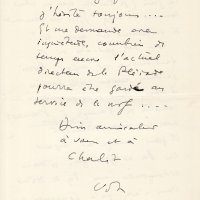 j'hésite toujours ....
Et me demande avec
inquiétude, combien de
temps encore l'actuel
directeur de la Pléiade
pourra être gardé au
service de la nrf ....
admirateur
à vous et à
Charles